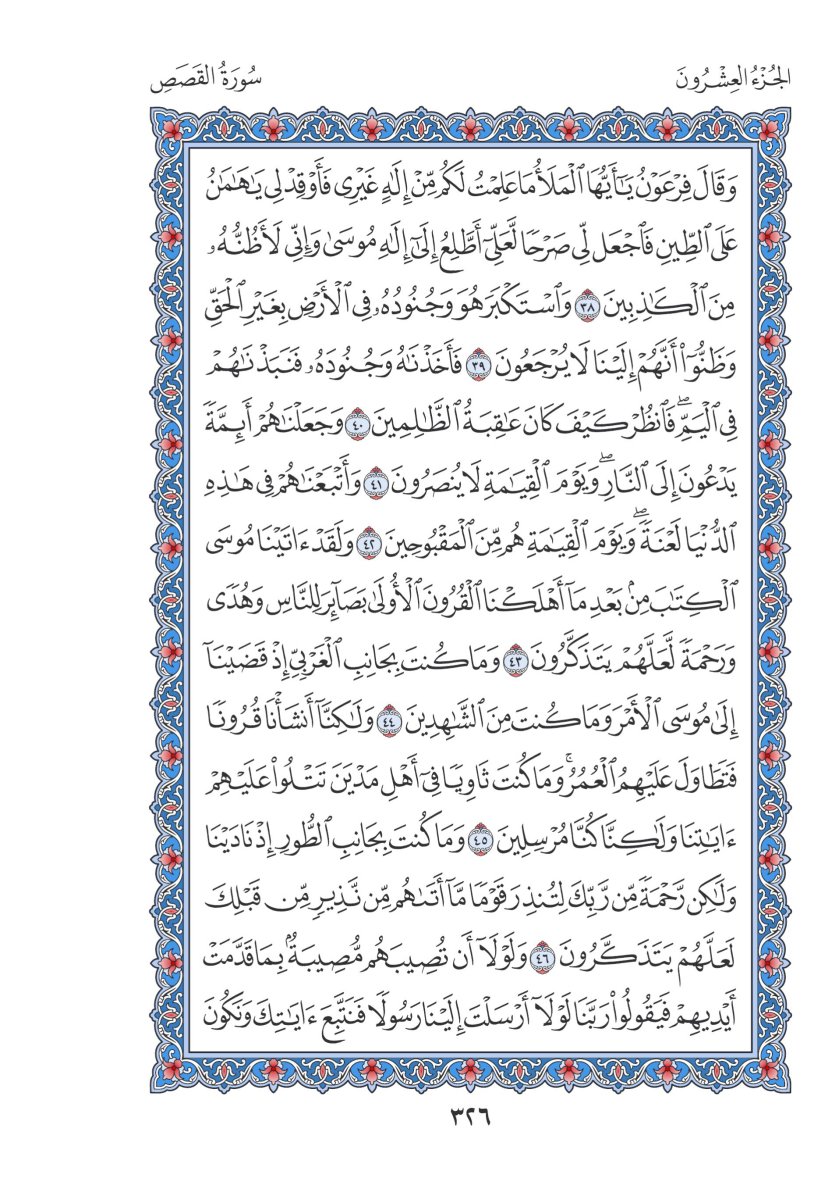 الجُزْءُ العِشْرُونَ
سُورَةُ القَصَصِ
وَقَالَ فِرْعَوْنُ يَٰٓأَيُّهَا ٱلْمَلَأُ مَا عَلِمْتُ لَكُم مِّنْ إِلَٰهٍ غَيْرِى فَأَوْقِدْ لِى يَٰهَٰمَٰنُ
عَلَى ٱلطِّينِ فَٱجْعَل لِّى صَرْحًا لَّعَلِّىٓ أَطَّلِعُ إِلَىٰٓ إِلَٰهِ مُوسَىٰ وَإِنِّى لَأَظُنُّهُۥ
مِنَ ٱلْكَٰذِبِينَ ٣٨ وَٱسْتَكْبَرَ هُوَ وَجُنُودُهُۥ فِى ٱلْأَرْضِ بِغَيْرِ ٱلْحَقِّ
وَظَنُّوٓا۟ أَنَّهُمْ إِلَيْنَا لَا يُرْجَعُونَ ٣٩ فَأَخَذْنَٰهُ وَجُنُودَهُۥ فَنَبَذْنَٰهُمْ
فِى ٱلْيَمِّ ۖ فَٱنظُرْ كَيْفَ كَانَ عَٰقِبَةُ ٱلظَّٰلِمِينَ ٤٠ وَجَعَلْنَٰهُمْ أَئِمَّةً
يَدْعُونَ إِلَى ٱلنَّارِ ۖ وَيَوْمَ ٱلْقِيَٰمَةِ لَا يُنصَرُونَ ٤١ وَأَتْبَعْنَٰهُمْ فِى هَٰذِهِ
ٱلدُّنْيَا لَعْنَةً ۖ وَيَوْمَ ٱلْقِيَٰمَةِ هُم مِّنَ ٱلْمَقْبُوحِينَ ٤٢ وَلَقَدْ ءَاتَيْنَا مُوسَى
ٱلْكِتَٰبَ مِنۢ بَعْدِ مَآ أَهْلَكْنَا ٱلْقُرُونَ ٱلْأُولَىٰ بَصَآئِرَ لِلنَّاسِ وَهُدًى
وَرَحْمَةً لَّعَلَّهُمْ يَتَذَكَّرُونَ ٤٣ وَمَا كُنتَ بِجَانِبِ ٱلْغَرْبِىِّ إِذْ قَضَيْنَآ
إِلَىٰ مُوسَى ٱلْأَمْرَ وَمَا كُنتَ مِنَ ٱلشَّٰهِدِينَ ٤٤ وَلَٰكِنَّآ أَنشَأْنَا قُرُونًا
فَتَطَاوَلَ عَلَيْهِمُ ٱلْعُمُرُ ۚ وَمَا كُنتَ ثَاوِيًا فِىٓ أَهْلِ مَدْيَنَ تَتْلُوا۟ عَلَيْهِمْ
ءَايَٰتِنَا وَلَٰكِنَّا كُنَّا مُرْسِلِينَ ٤٥ وَمَا كُنتَ بِجَانِبِ ٱلطُّورِ إِذْ نَادَيْنَا
وَلَٰكِن رَّحْمَةً مِّن رَّبِّكَ لِتُنذِرَ قَوْمًا مَّآ أَتَىٰهُم مِّن نَّذِيرٍ مِّن قَبْلِكَ
لَعَلَّهُمْ يَتَذَكَّرُونَ ٤٦ وَلَوْلَآ أَن تُصِيبَهُم مُّصِيبَةٌۢ بِمَا قَدَّمَتْ
أَيْدِيهِمْ فَيَقُولُوا۟ رَبَّنَا لَوْلَآ أَرْسَلْتَ إِلَيْنَا رَسُولًا فَنَتَّبِعَ ءَايَٰتِكَ وَنَكُونَ
٣٢٦